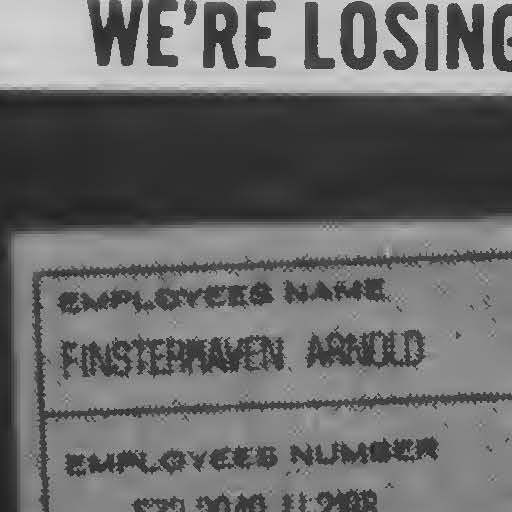 WE'RE LOSING
EMPLOYEES NAME
FINSTERHAVEN ARNOLD
EMPLOYEES NUMBER